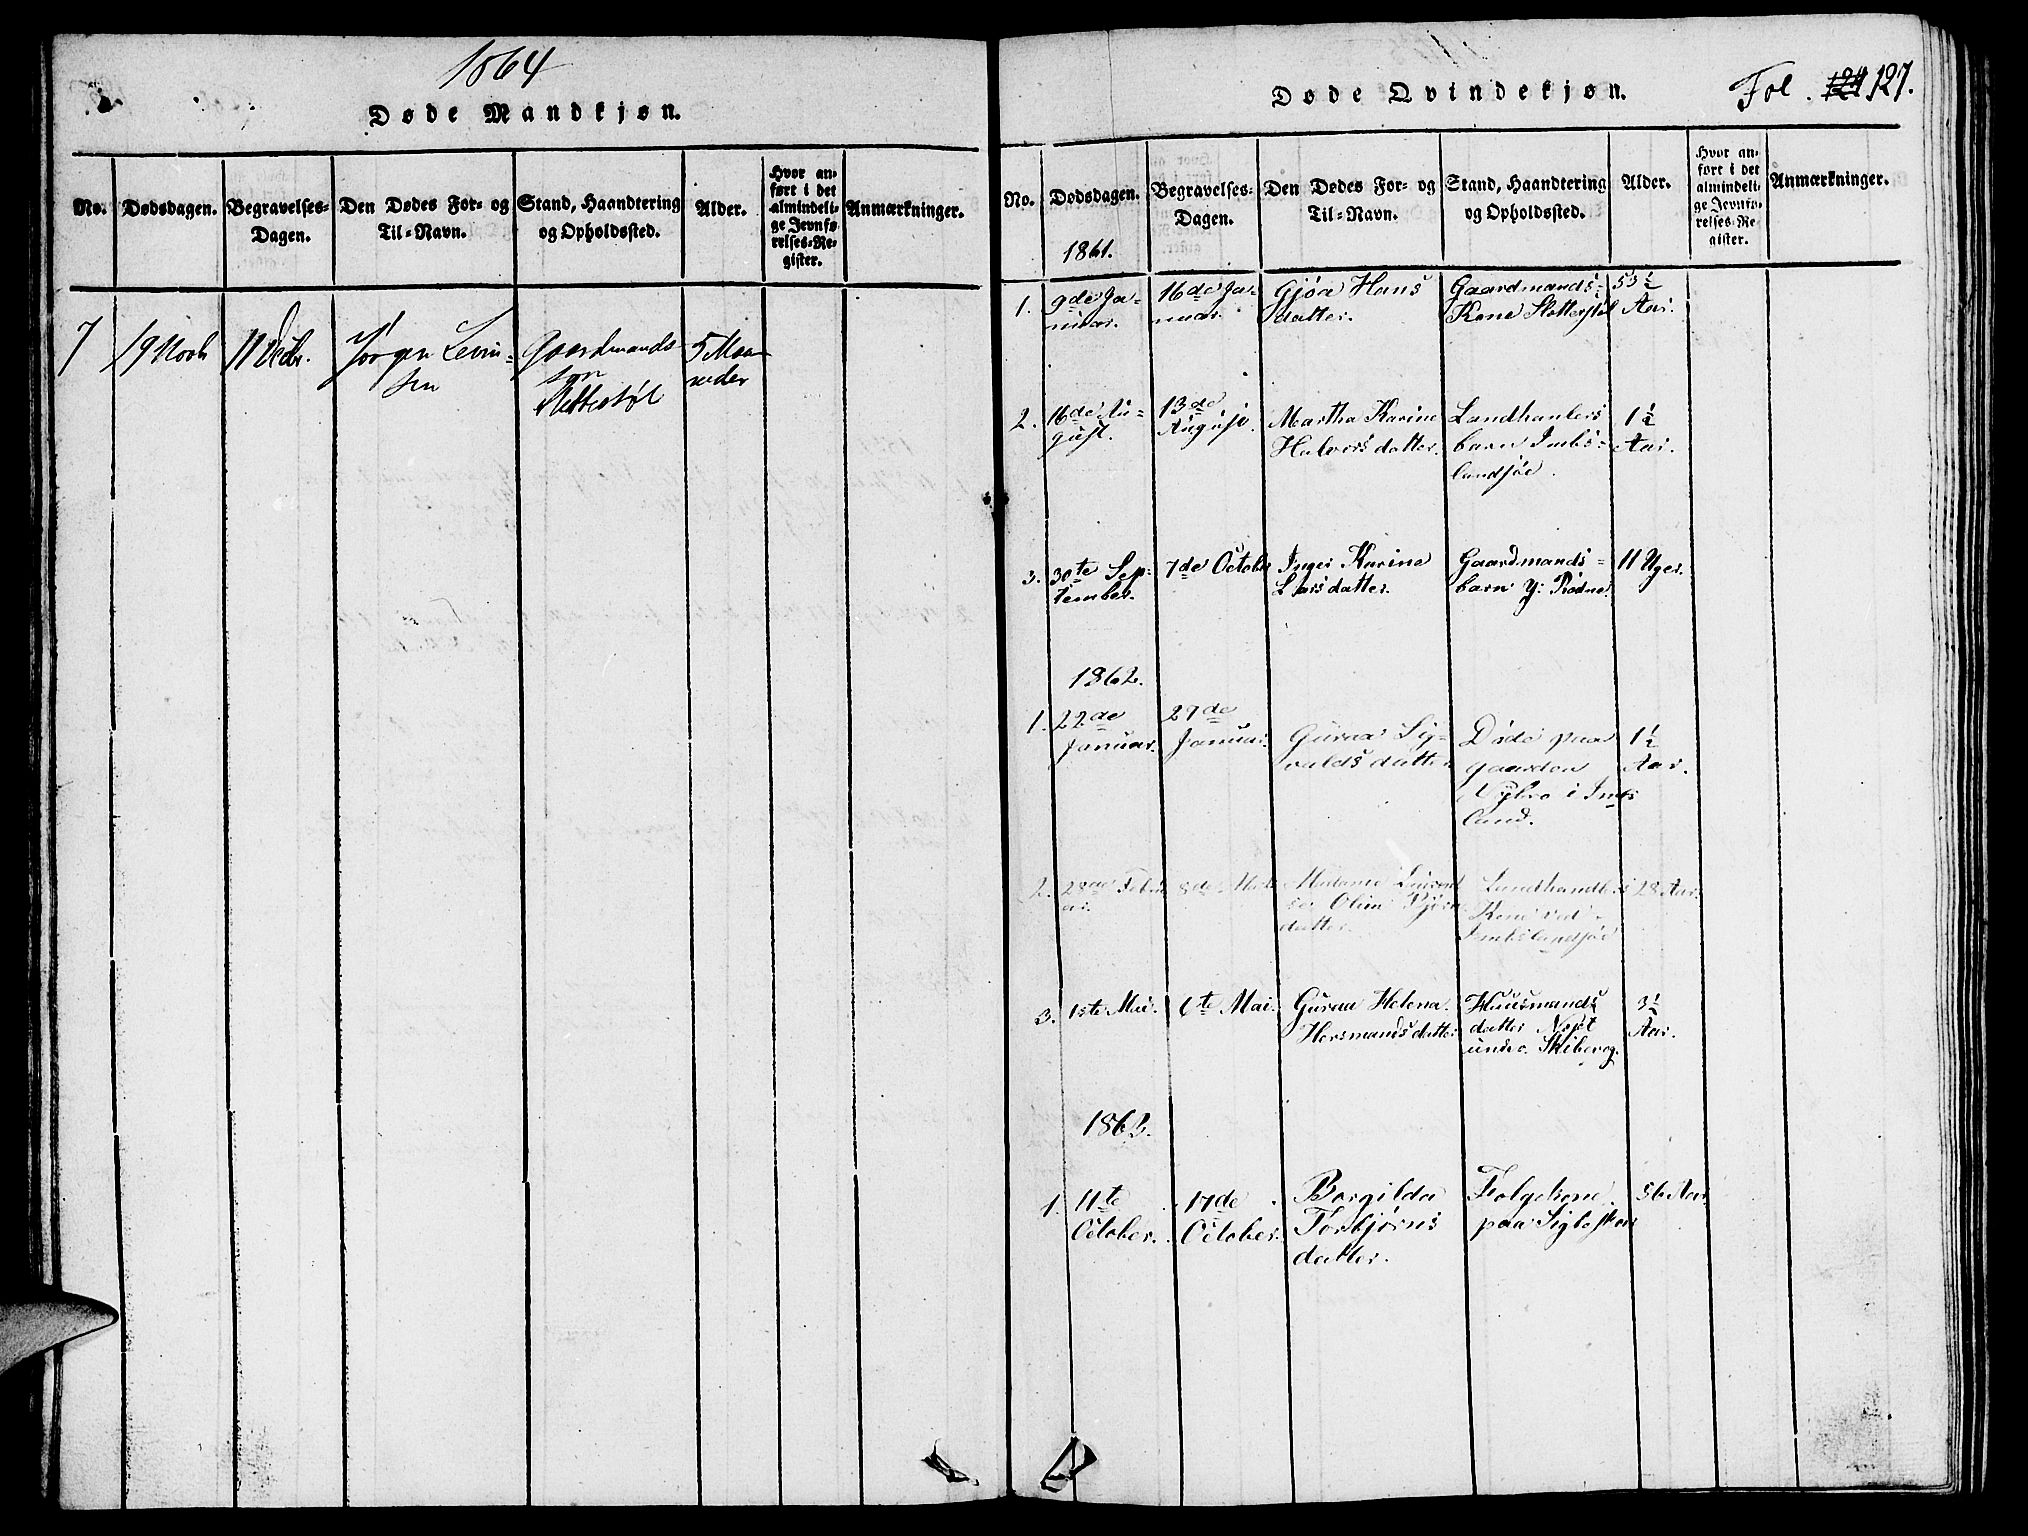 1864
Døde Mandkjøn.
No.
Dødsdagen.
Begravelses-
Dagen.
Den Dødes For- og
Til-Navn.
Stand, Haandtering
og Opholdssted.
Alder.
Hvor an-
ført i det
almindeli-
ge Jevnfø-
relses-Re-
gister.
Anmærkninger.
7
19 Novb
11 Decbr.
Jørgen Levin-
sen
Gaardmands
søn
Slettestøl
5 Maa-
neder
Døde Qvindekjøn.
Fol. 124 127.
No.
Dødsdagen.
Begravelses-
Dagen.
Den Dødes For- og
Til-Navn.
Stand, Haandtering
og Opholdssted.
Alder.
Hvor an-
ført i det
almindeli-
ge Jevnfø-
relses-Re-
gister.
Anmærkninger.
1861.
1.
9de Ja-
nuar.
16de Ja-
nuar.
Gjøa Hans
datter.
Gaardmands-
Kone Slettestøl
53½
Aar.
2.
16de Au-
gust.
13de
August.
Martha Karine
Halvorsdatter.
Landhanlers
barn Imbs-
landsjøe.
1½
Aar.
3.
30te Sep-
tember.
7de October
Inger Karine
Larsdatter.
Gaardmands-
barn y: Rødne.
11 Uger.
1862.
1.
22de
Januar.
29de
Januar.
Guraa Sig-
valdsdatter
Døde paa
gaarden
i Imbs
land.
1½
Aar.
2.
28de Febru
ar.
8de
Madame
Oline Bjørn
datter.
Landhandlers
Kone ved
Imbslandsjøe
28 Aar.
3.
1ste Mai.
6te Mai.
Guraa Helena
Hersmandsdatter
Huusmands
datter
under Skiberg.
3½
Aar.
1.
11te
October.
17de
October.
Borgilda
Torbjørns
datter.
Folgekone
paa
86 Aar